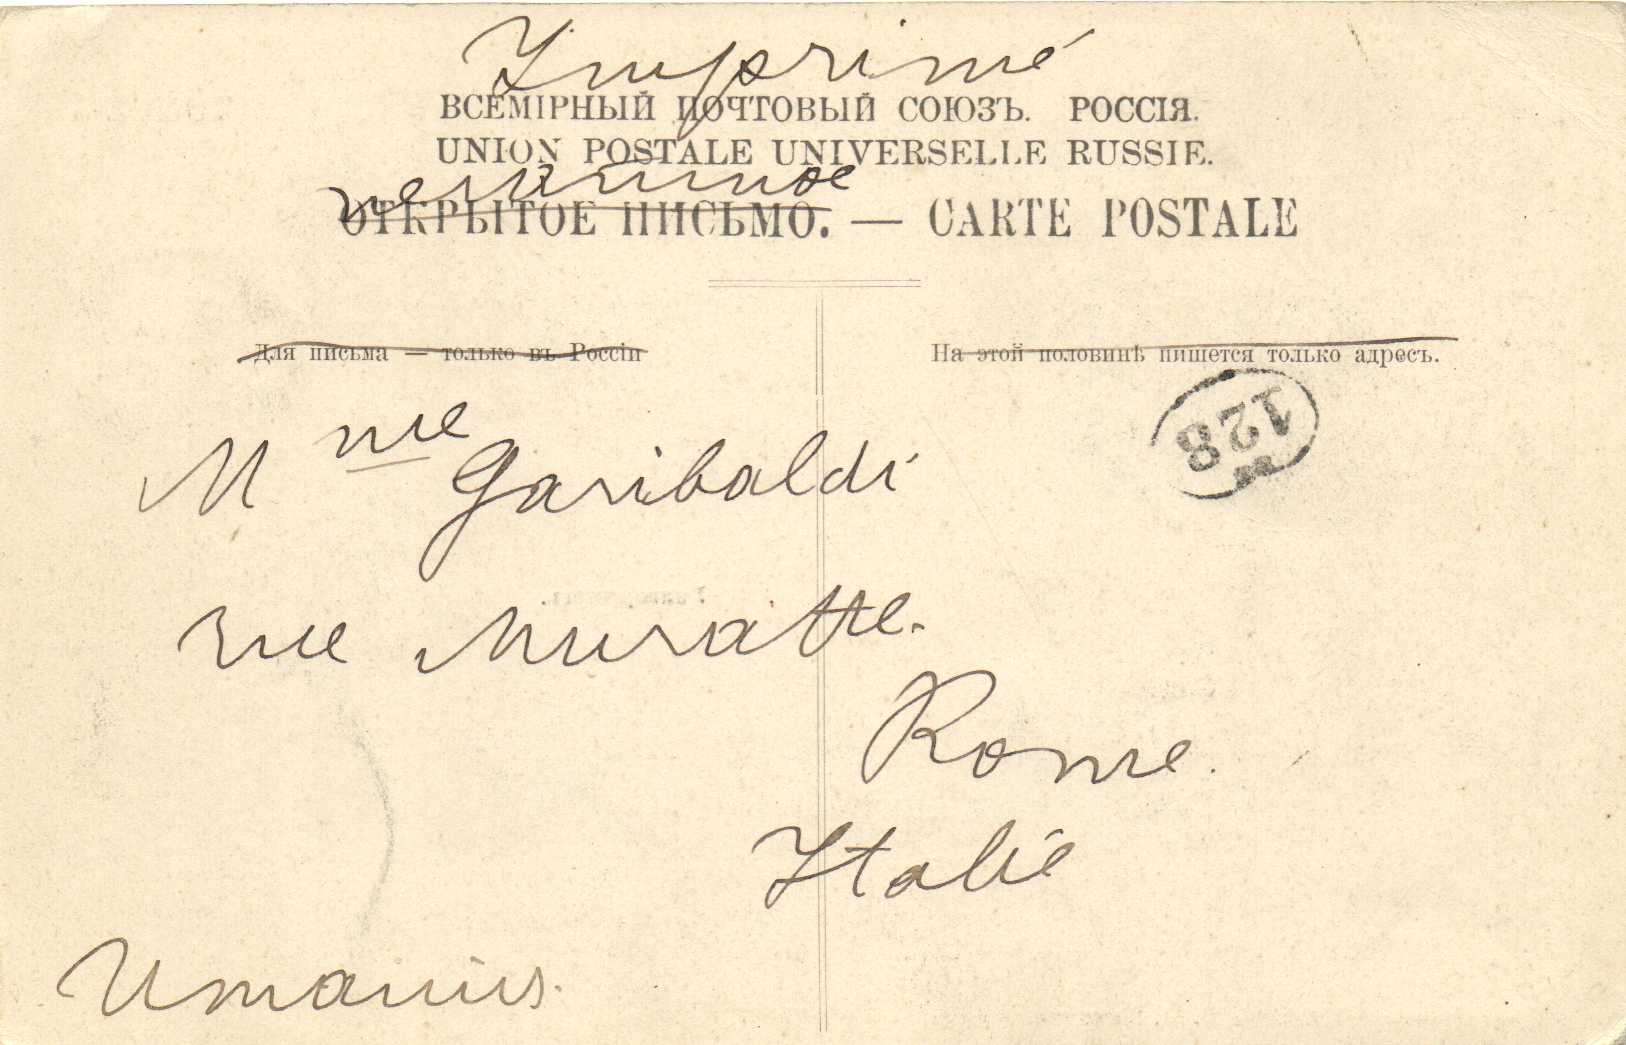 Imprimé
ВСЕМІРНЫЙ ПОЧТОВЫЙ СОЮЗЪ. РОССІЯ.
UNION POSTALE UNIVERSELLE RUSSIE.
печатное
ОТКРЫТОЕ ПИСЬМО. — CARTE POSTALE
Для письма — только въ Россіи
На этой половинѣ пишется только адресъ.
128
Mme Garibaldi
rue Muratte.
Rome.
Italie
Италия